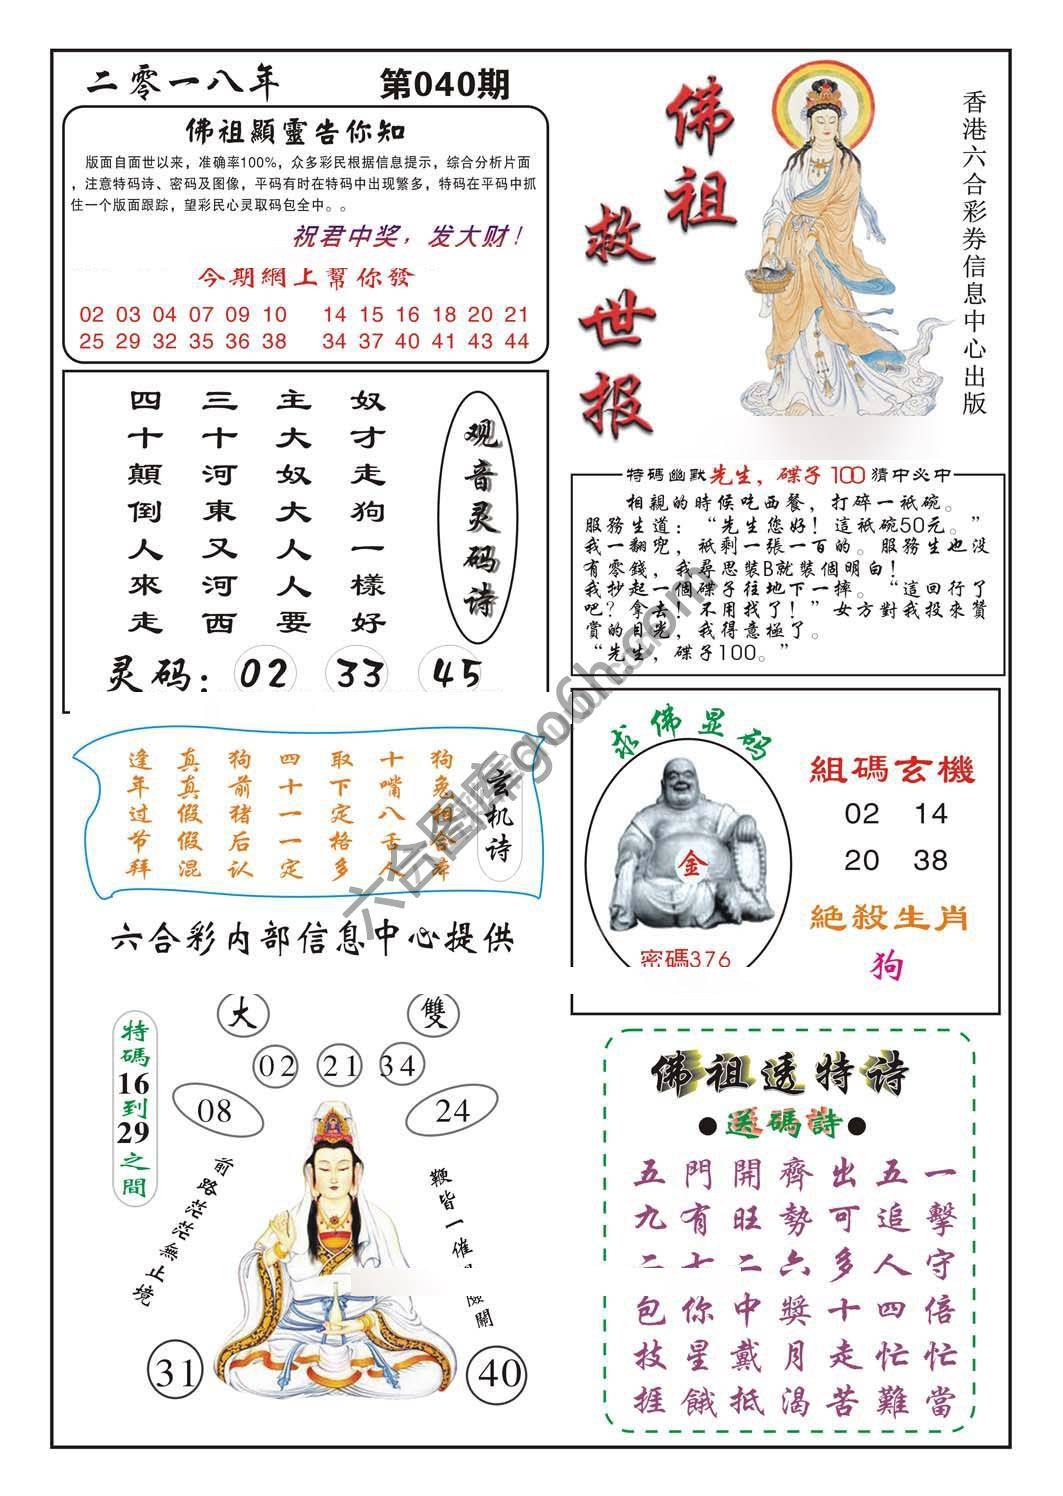 二零一八年 第040期
佛祖顯靈告你知
版面自面世以来，准确率100%，众多彩民根据信息提示，综合分析片面
，注意特码诗、密码及图像，平码有时在特码中出现繁多，特码在平码中抓
住一个版面跟踪，望彩民心灵取码包全中。。
祝君中奖，发大财！
今期網上幫你發
02 03 04 07 09 10 14 15 16 18 20 21
25 29 32 35 36 38 34 37 40 41 43 44
佛祖
救世报
香港六合彩券信息中心出版
观音灵码诗
奴才走狗一樣好
主大奴大人人要
三十河東又河西
四十顛倒人來走
灵码：02 33 45
特碼幽默先生，碟子100猜中必中
相親的時候吃西餐，打碎一祇碗。
服務生道：“先生您好！這祇碗50元。”
我一翻兜，祇剩一張一百的。服務生也没
有零錢，我尋思裝B就裝個明白！
我抄起一個碟子往地下一摔。“這回行了
吧？拿去！不用找了！”女方對我投來贊
賞的目光，我得意極了。
“先生，碟子100。”
玄机诗
狗兔相合
十嘴八舌人
取下定格多
四十一一定
狗前猪后认
真真假假混
逢年过节拜
六合彩内部信息中心提供
求佛显码
金
密碼376
組碼玄機
02 14
20 38
絕殺生肖
狗
特碼16到29之間
大 雙
02 21 34
08 24
前路茫茫無止境
鞭皆一催 關
31 40
佛祖透特诗
●送碼詩●
五門開齊出五一
九有旺勢可追擊
二七二六多人守
包你中獎十四倍
技星戴月走忙忙
捱餓抵渴苦難當
六合图库go6h.com